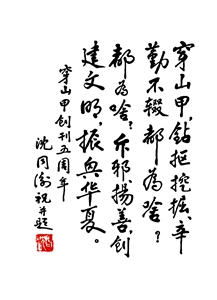 穿山甲,钻抠挖掘,辛
勤不辍都為啥?
都為啥?斥邪揚善,創
建文明,振興华夏。
穿山甲創刊五周年
沈同衡祝并題